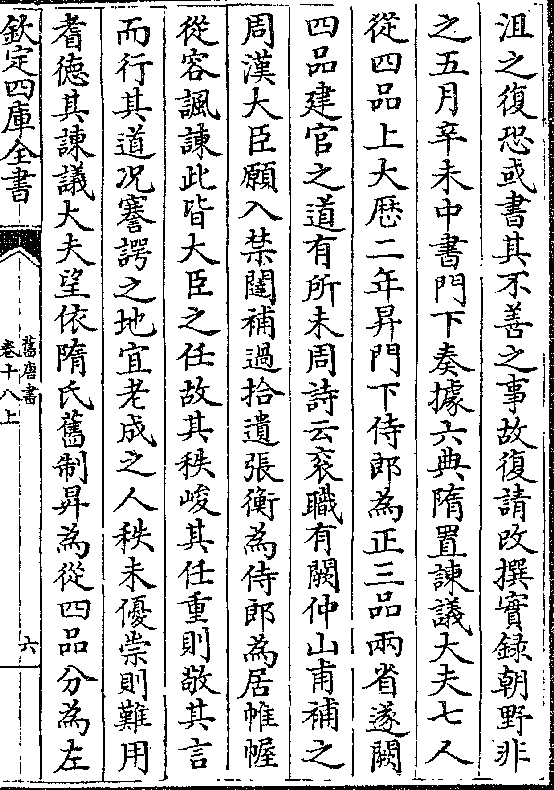 沮之復恐或書其不善之事故復請改撰實録朝野非
之五月辛未中書門下奏據六典隋置諫議大夫七人
從四品上大歴二年昇門下侍郎為正三品兩省遂闕
四品建官之道有所未周詩云衮職有闕仲山甫補之
周漢大臣願入禁闥補過拾遺張衡為侍郎為居帷幄
從容諷諫此皆大臣之任故其秩峻其任重則敬其言
而行其道况謇諤之地宜老成之人秩未優崇則難用
耆德其諫議大夫望依隋氏舊制昇為從四品分為左
欽定四庫全書
舊唐書
卷十八上
六